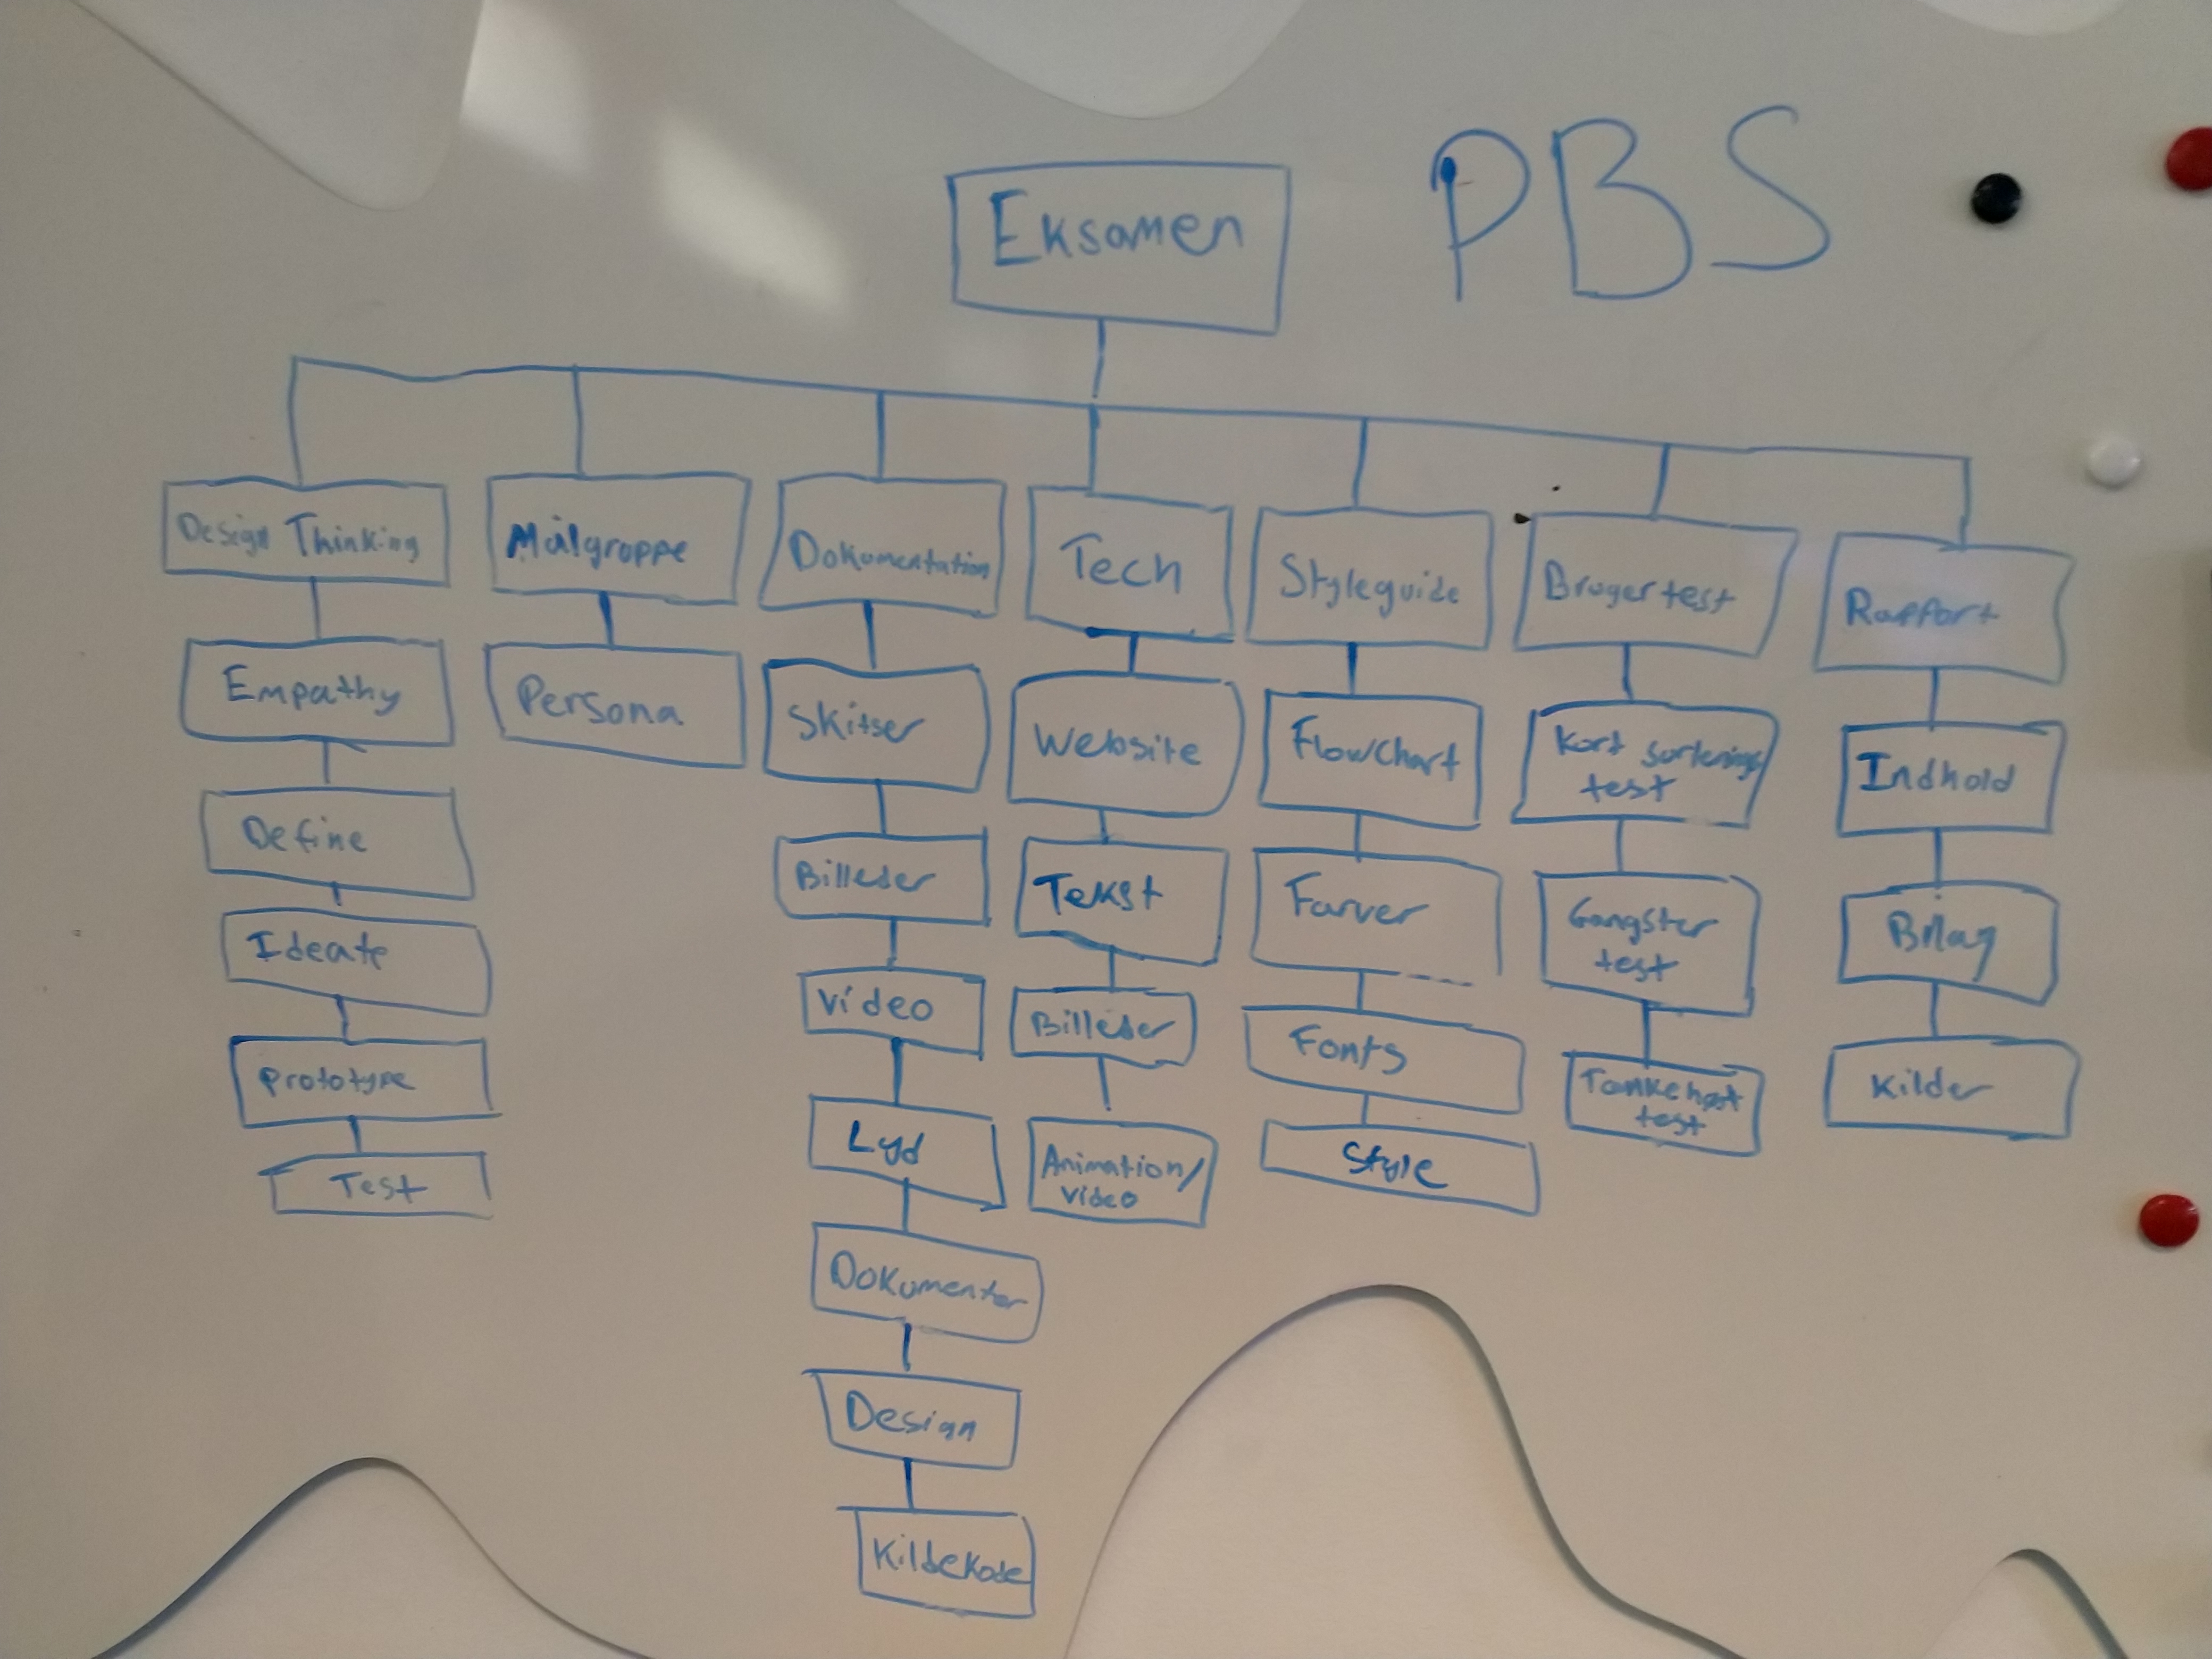 Eksamen
PBS
Design Thinking
Empathy
Define
Ideate
Prototype
Test
Målgruppe
Persona
Dokumentation
Skitser
Billeder
Video
Lyd
Dokumenter
Design
Kildekode
Tech
Website
Tekst
Billeder
Animation/
video
Styleguide
Flowchart
Farver
Fonts
Style
Brugertest
Kort sorterings
test
Gangster
test
Tænkehøjt
test
Rapport
Indhold
Bilag
Kilder